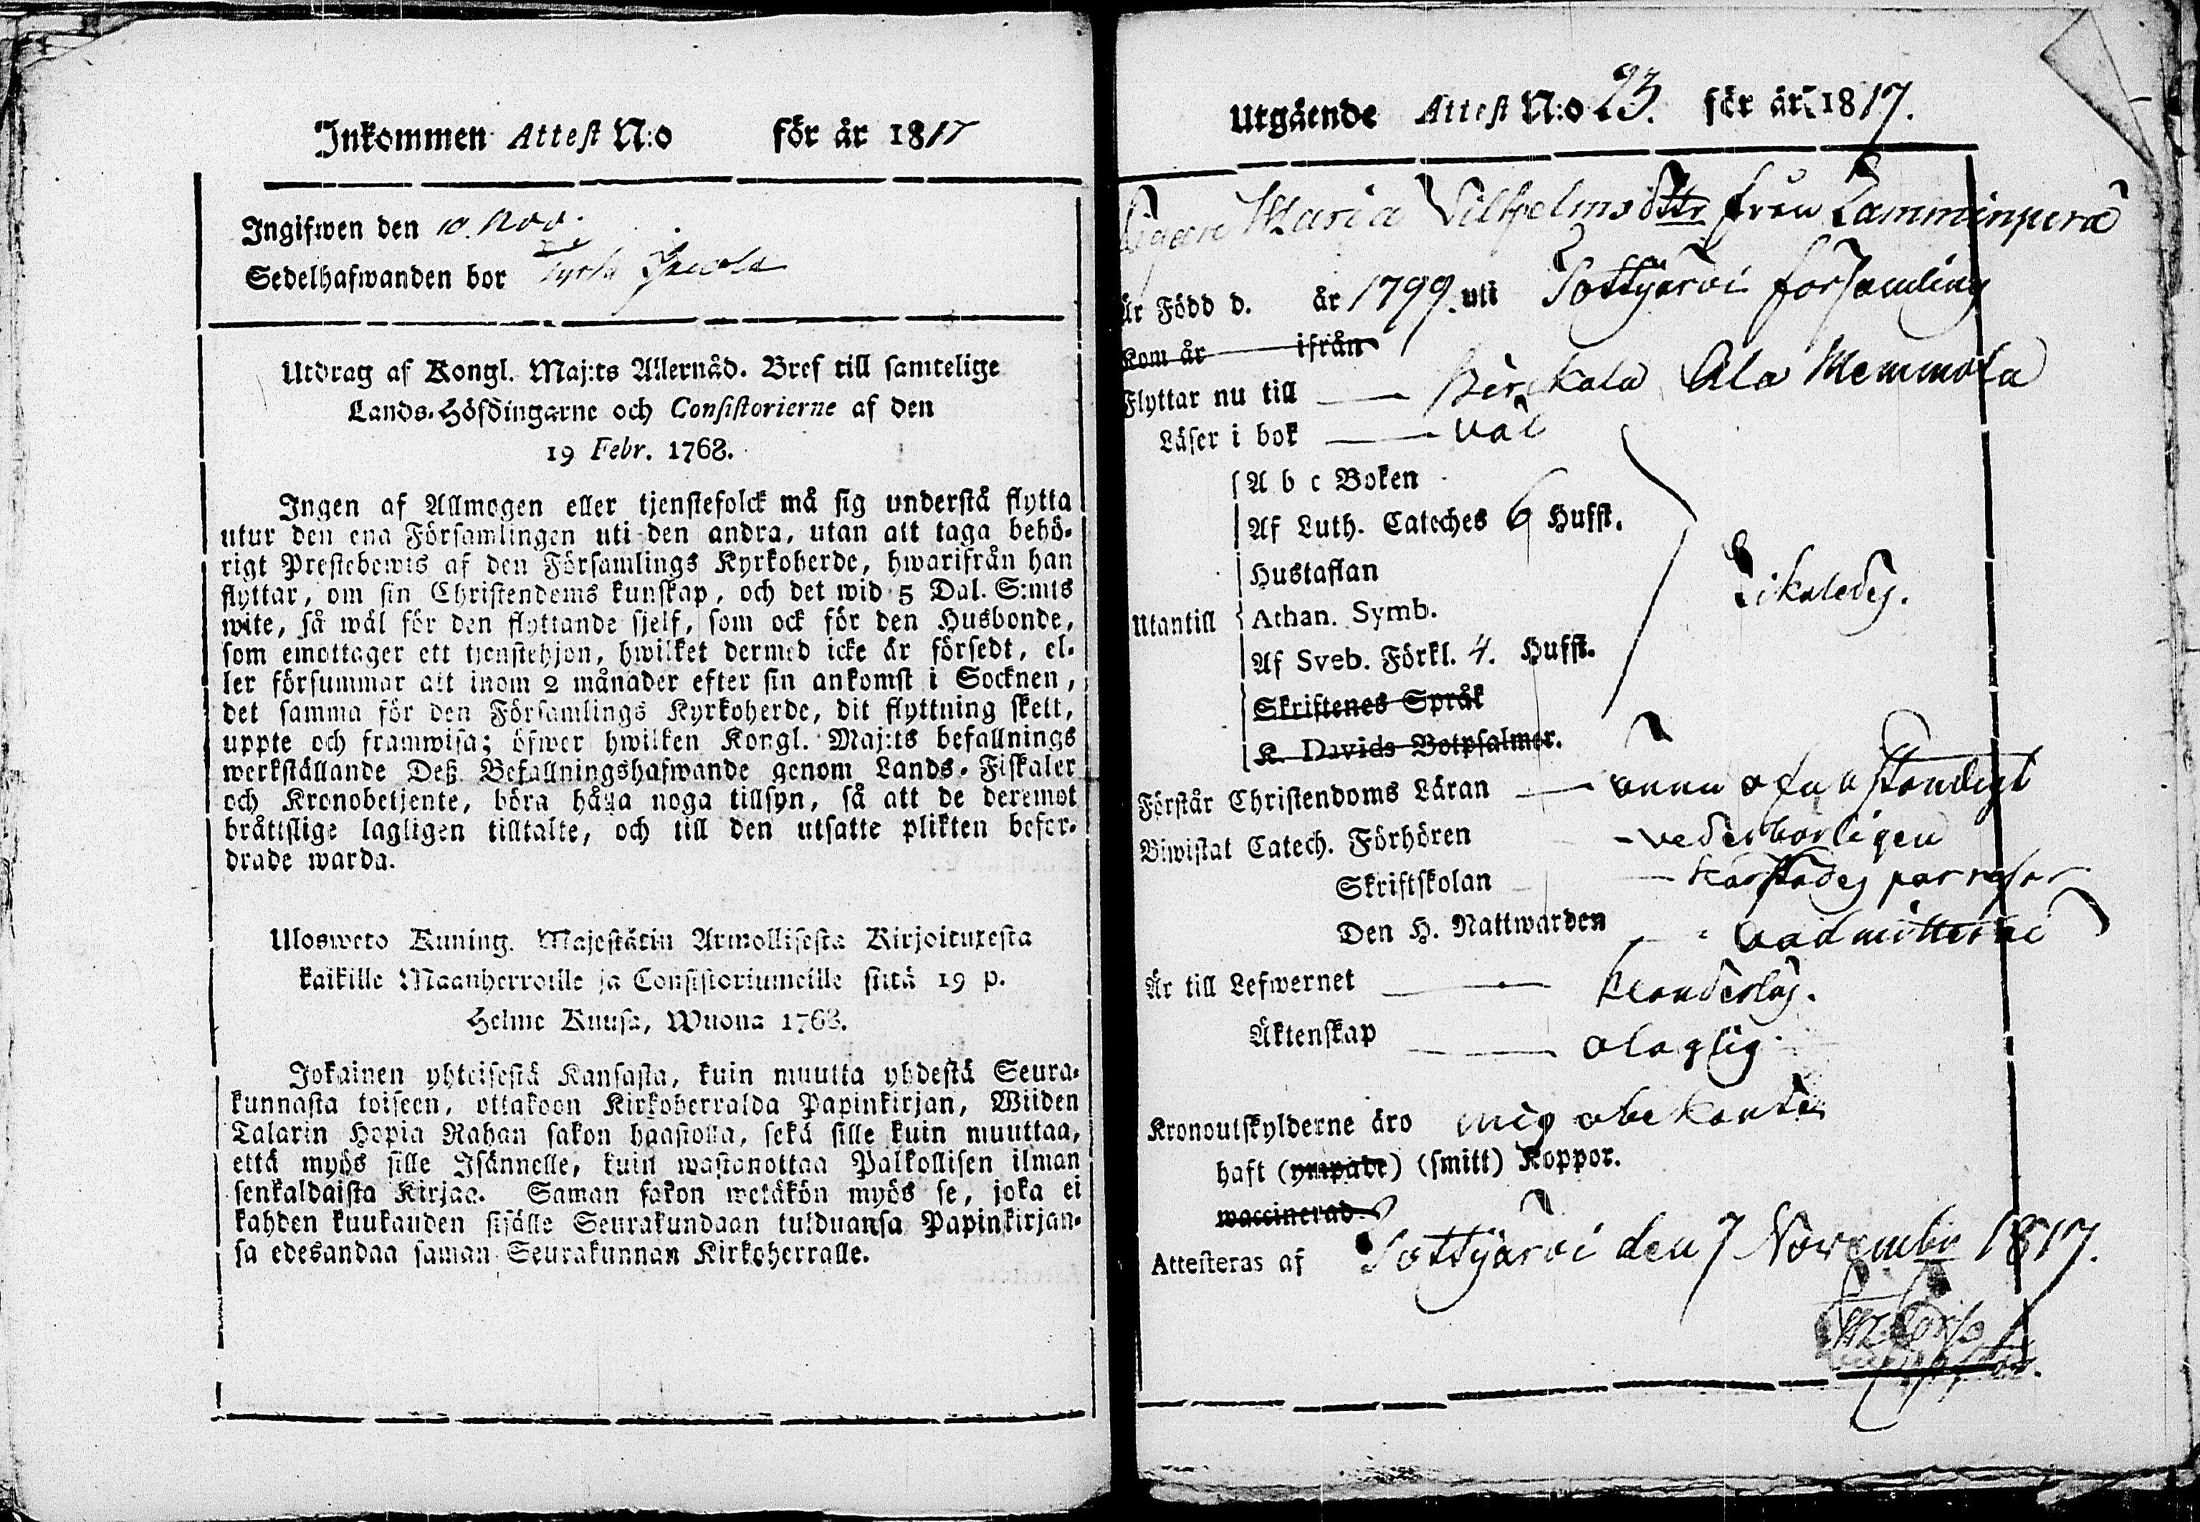 Inkommen Attest N:o för år 1817
Ingifwen den 10 Nov.
Sedelhafwanden bor
Utdrag af Kongl. Maj:ts Allernåd. Bref till samtelige
Lands-Höfdingarne och Consistorierne af den
19 Febr. 1768.
Ingen af Allmogen eller tjenstefolck må sig understå flytta
utur den ena Församlingen uti den andra, utan att taga behö-
rigt Prestebewis af den Församlings Kyrkoherde, hwarifrån han
flyttar, om sin Christendoms kunskap, och det wid 5 Dal. S:mts
wite, så wäl för den flyttande sjelf, som ock för den Husbonde,
som emottager ett tjenstehjon, hwilket dermed icke är försedt, el-
ler försummar att inom 2 månader efter sin ankomst i Socknen,
det samma för den Församlings Kyrkoherde, dit flyttning skett,
uppte och framwisa; öfwer hwilken Kongl. Maj:ts befallnings
werkställande Deß Befallningshafwande genom Lands-Fiskaler
och Kronobetjente, böra hålla noga tillsyn, så att de deremot
bråttslige lagligen tilltalte, och till den utsatte plikten befor-
drade warda.
Ulosweto Kuning. Majestätin Armollisesta Kirjoituxesta
kaikille Maanherroille ja Consistoriumeille siitä 19 p.
Helme Kuusa, Wuona 1768.
Jokainen yhteisestä Kansasta, kuin muutta yhdestä Seura-
kunnasta toiseen, ottakoon Kirkoherralda Papinkirjan, Wiiden
Talarin Hopia Rahan sakon haastolla, sekä sille kuin muuttaa,
että myös sille Isännelle, kuin wastanottaa Palkollisen ilman
senkaldaista Kirjaa. Saman sakon wetäkön myös se, joka ei
kahden kuukauden sisälle Seurakundaan tulduansa Papinkirjan-
sa edesandaa saman Seurakunnan Kirkoherralle.
Utgående Attest N:o 23. för år 1817.
Pigan Maria Vilhelmsdttr från Lamminperä
Är Född d. år 1799. uti Tottijärvi församling
Kom år ifrån
Flyttar nu till Birckala Ala Memmola
Läser i bok väl
A b c Boken
Af Luth. Cateches 6 Hufst.
Hustaflan
Utantill Athan. Symb. Likaledes.
Af Sveb. Förkl. 4. Hufst.
Skriftenes Språk
K. Davids Botpsalmer.
Förstår Christendoms Läran ännu ofullständigt
Biwistat Catech. Förhören vederbörligen
Skriftskolan
Den H. Nattwarden
Är till Lefwernet klanderlös.
Äktenskap olaglig.
Kronoutskylderne äro mig obekante
haft (ympade) (smitt) Koppor.
waccinerad
Attesteras af Tottijärvi den 7 November 1817.